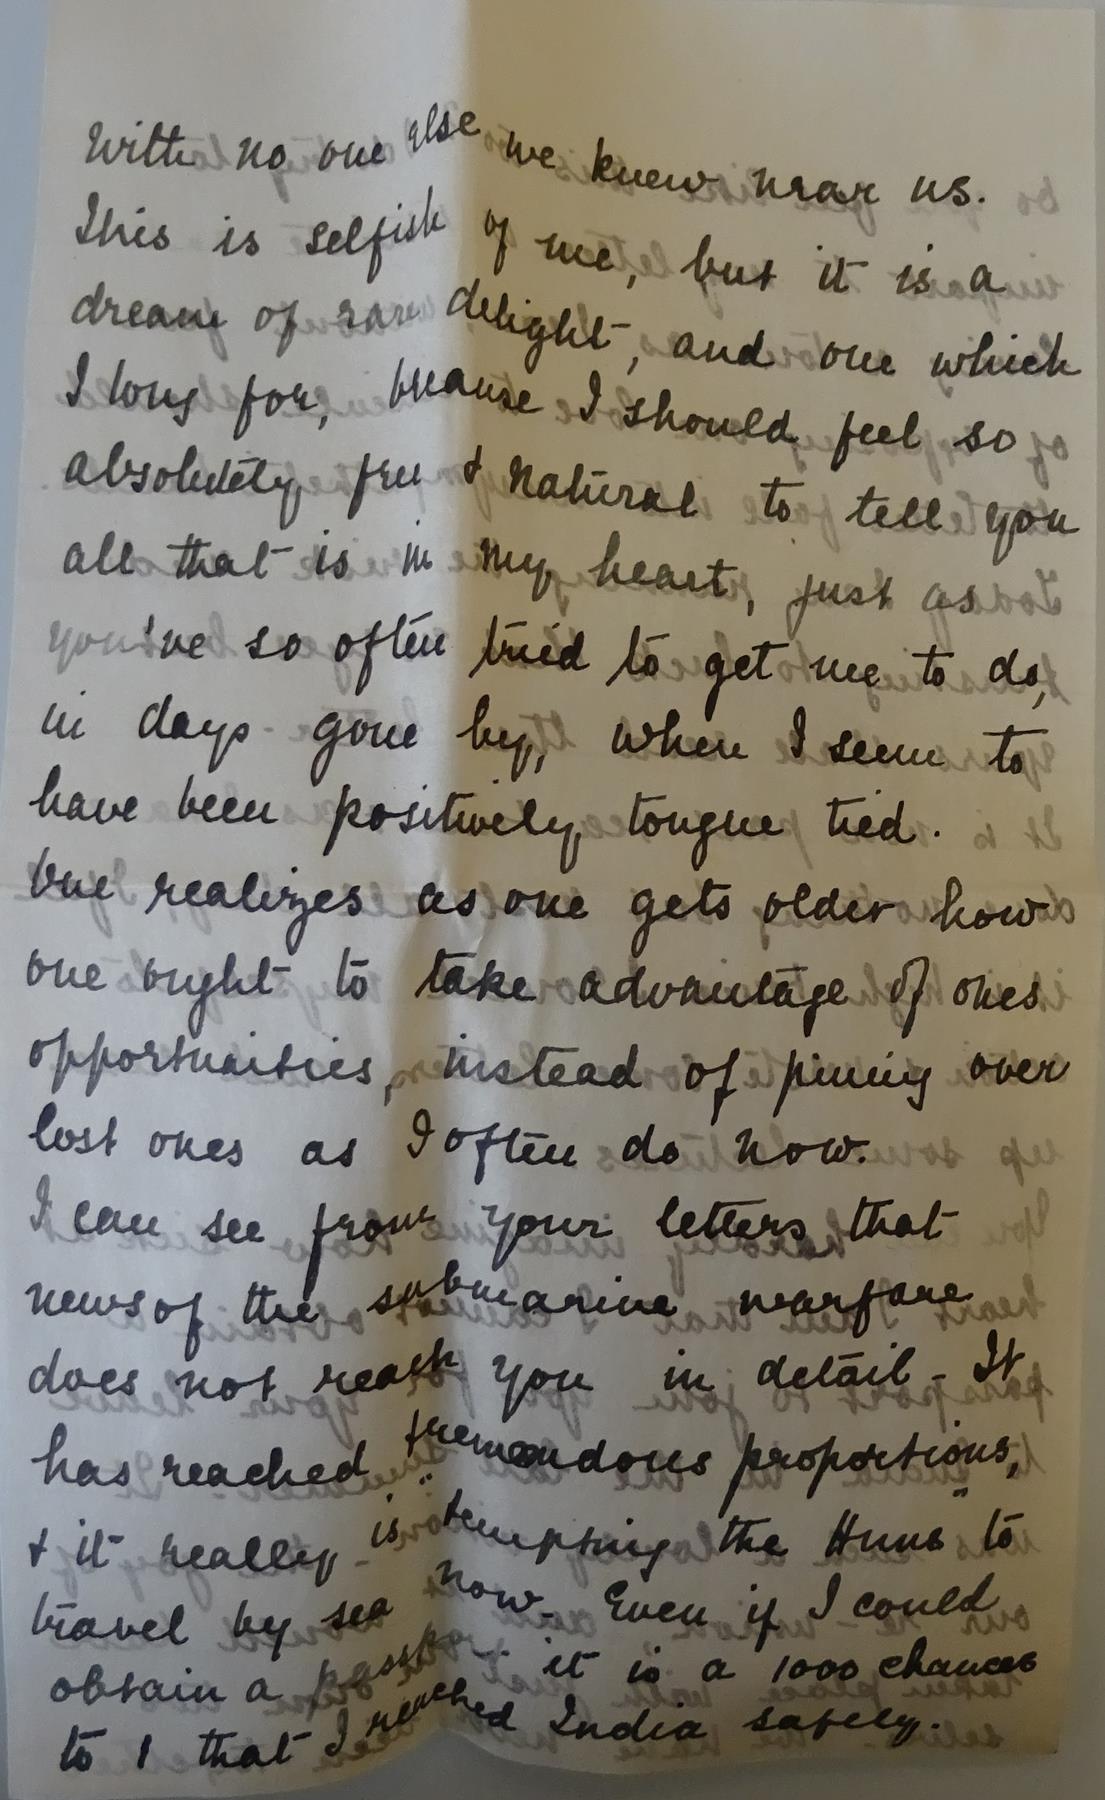 With no one else we knew near us.
This is selfish of me, but it is a
dream of rare delight, and one which
I long for, because I should feel so
absolutely free & natural to tell you
all that is in my heart, just as
you've so often tried to get me to do,
in days gone by, when I seem to
have been positively tongue tied.
One realizes as one gets older how
one ought to take advantage of ones
opportunities, instead of pining over
lost ones as I often do now.
I can see from your letters that
news of the submarine warfare
does not reach you in detail - It
has reached tremendous proportions,
& it really is "tempting the Huns" to
travel by sea now. Even if I could
obtain a passport it is a 1000 chances
to 1 that I reached India safely.